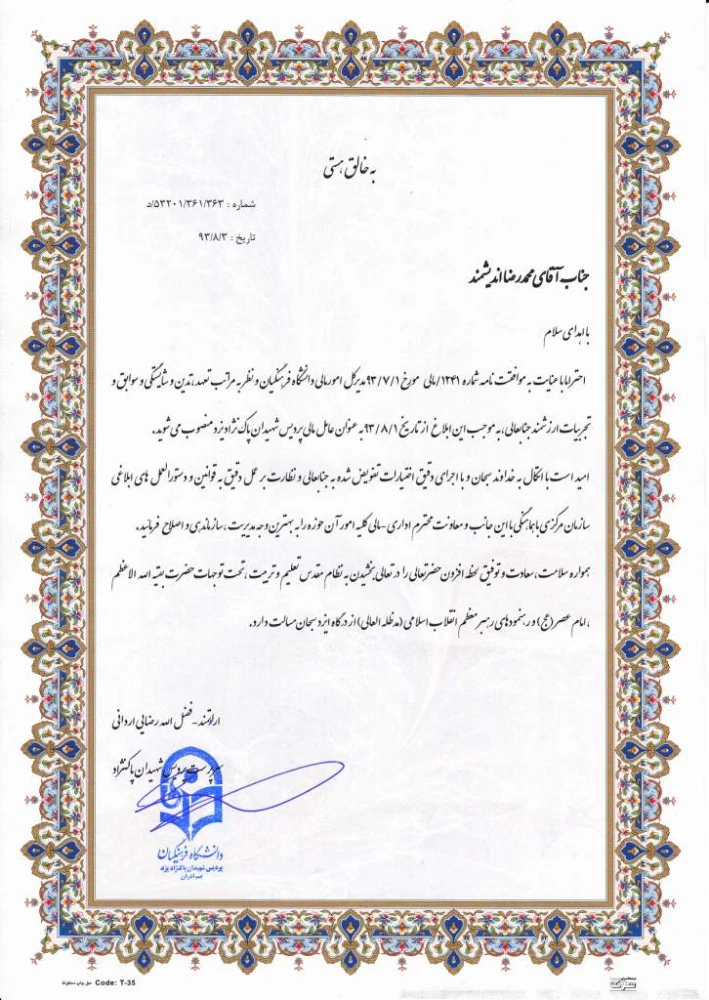 به خالق هستی
شماره : ۵۳۲۰۱/۳۶۱/۳۶۳/د
تاریخ : ۹۳/۸/۳
جناب آقای محمدرضا اندیشمند
با اهدای سلام
احتراما با عنایت به موافقت نامه شماره ۱۲۴۱/مالی مورخ ۹۳/۷/۱ مدیرکل امور مالی دانشگاه فرهنگیان و نظر به مراتب تعهد، تدین و شایستگی و سوابق و
تجربیات ارزشمند جنابعالی، به موجب این ابلاغ از تاریخ ۹۳/۸/۱ به عنوان عامل مالی پردیس شهیدان پاک نژاد یزد منصوب می شوید.
امید است با اتکال به خداوند سبحان و با اجرای دقیق اختیارات تفویض شده به جنابعالی و نظارت بر عمل دقیق به قوانین و دستورالعمل های ابلاغی
سازمان مرکزی با هماهنگی با این جانب و معاونت محترم اداری-مالی کلیه امور آن حوزه را به بهترین وجه مدیریت، سازماندهی و اصلاح فرمائید.
همواره سلامت، سعادت و توفیق لحظه افزون حضرتعالی را در تعالی بخشیدن به نظام مقدس تعلیم و تربیت، تحت توجهات حضرت بقیه الله الاعظم
، امام عصر (عج) و رهنمودهای رهبر معظم انقلاب اسلامی (مدظله العالی) از درگاه ایزد سبحان مسألت دارد.
ارادتمند-فضل الله رضایی اردانی
سرپرست پردیس شهیدان پاکنژاد
دانشگاه فرهنگیان
پردیس شهیدان پاکنژاد یزد
برادران
Code: T-35 حق چاپ محفوظ